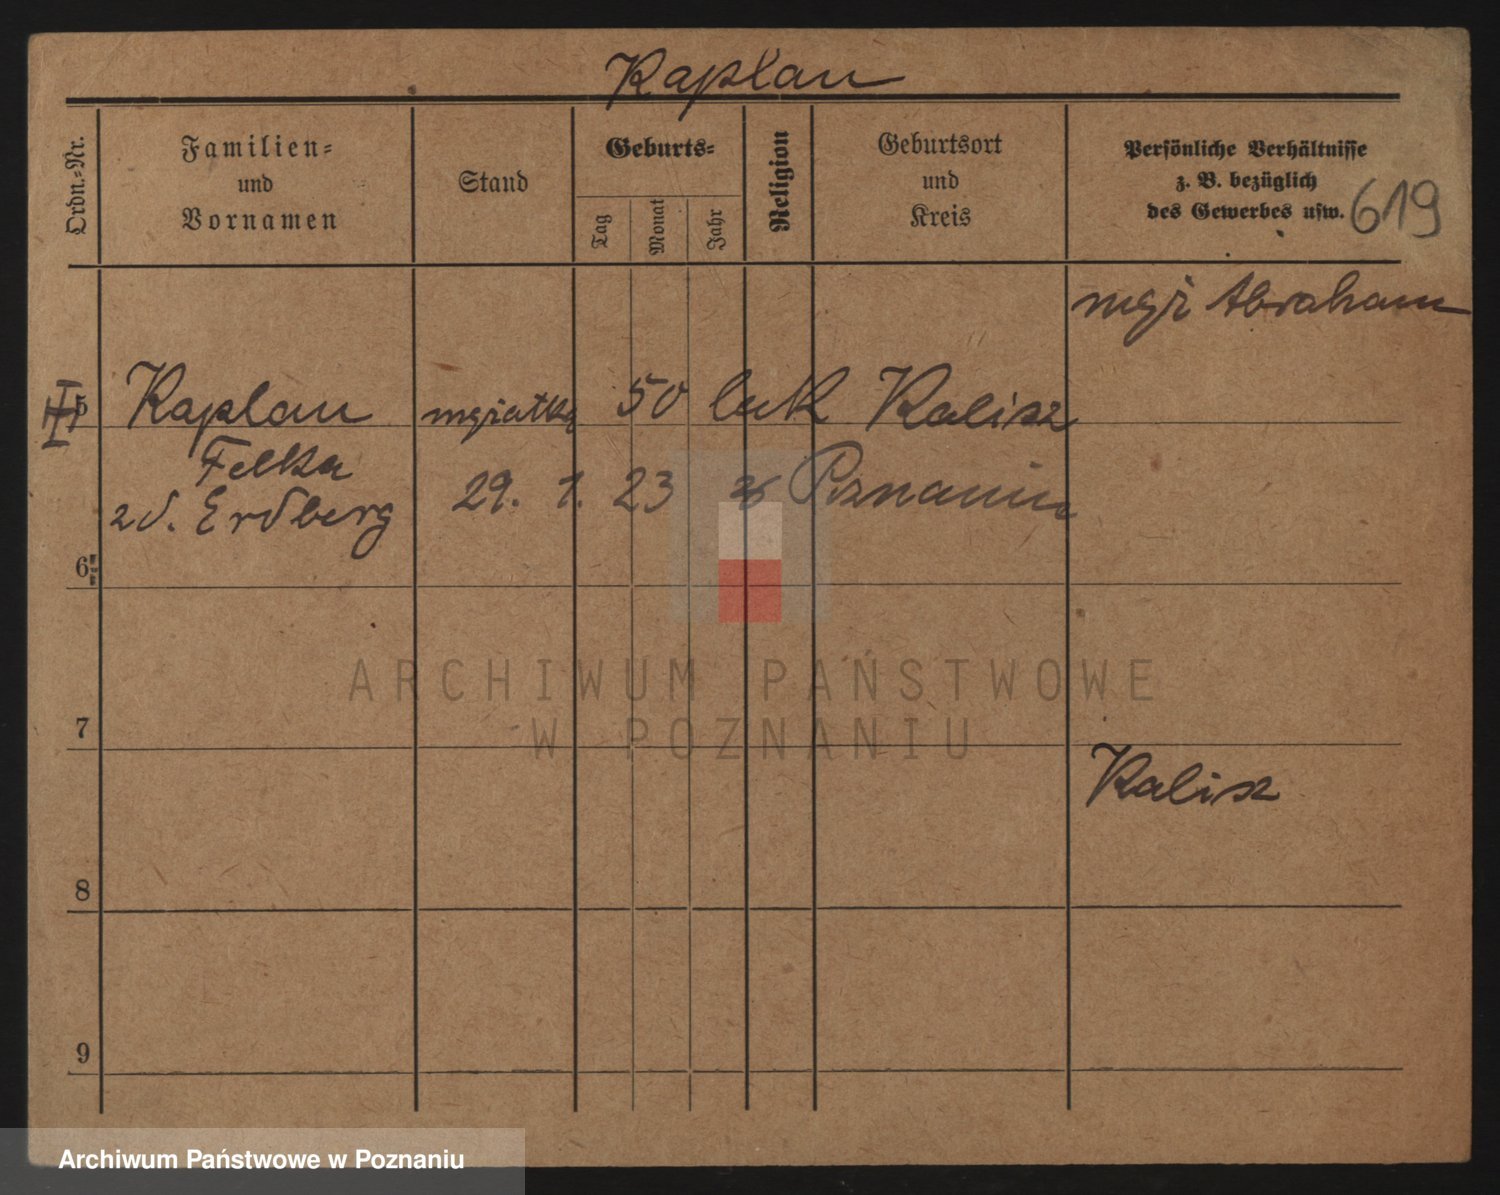 Kaplan
Ordn.-Nr.
Familien-
und
Vornamen
Stand
Geburts-
Tag
Monat
Jahr
Religion
Geburtsort
und
Kreis
Persönliche Verhältnisse
z. B. bezüglich
des Gewerbes usw.
619
mąż Abraham
5 Kaplan mężatka 50 lat Kalisz
Felka 29. 1. 23 Poznaniu
zd. Erdberg
6
7
Kalisz
8
9
ARCHIWUM PAŃSTWOWE
W POZNANIU
Archiwum Państwowe w Poznaniu